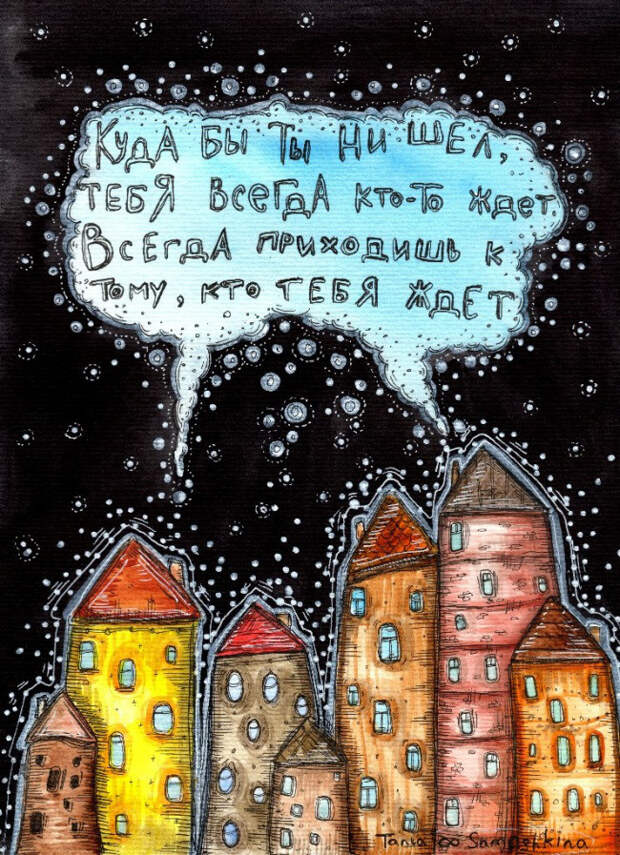 Куда бы ты ни шел,
тебя всегда кто-то ждет.
Всегда приходишь к
тому, кто тебя ждет
Tania